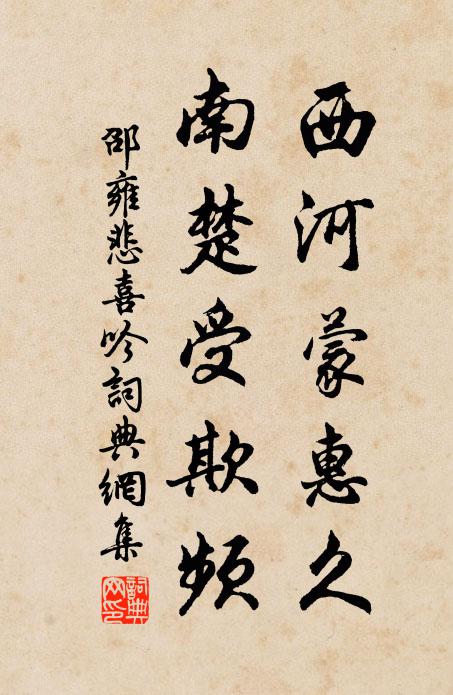 西河蒙惠久
南楚受欺頻
邵雍悲喜吟詞典網集
詞典網印